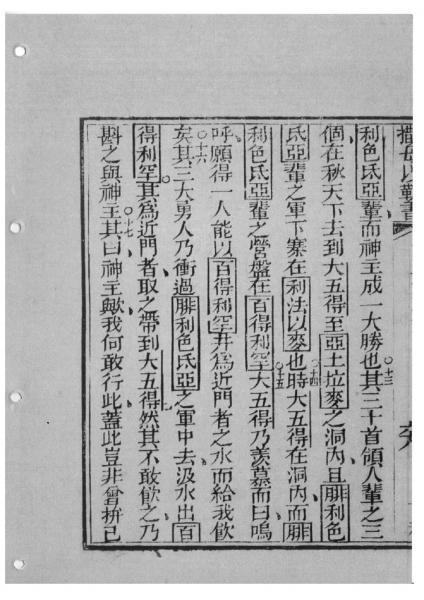 利色氏亞輩而神主成一大勝也○十三其三十首領人輩之三
個在秋天下去到大五得至亞土垃麥之洞內且腓利色
氏亞輩之軍下寨在利法以麥也○十四時大五得在洞內而腓
利色氏亞輩之營盤在百得利罕○十五大五得乃羨慕而曰嗚
呼願得一人能以百得利罕井爲近門者之水而給我飲
矣○十六其三大勇人乃衝過腓利色氏亞之軍中去汲水出百
得利罕其爲近門者取之帶到大五得然其不敢飲之乃
斟之與神主○十七其曰神主歟我何敢行此蓋此豈非曾拚己